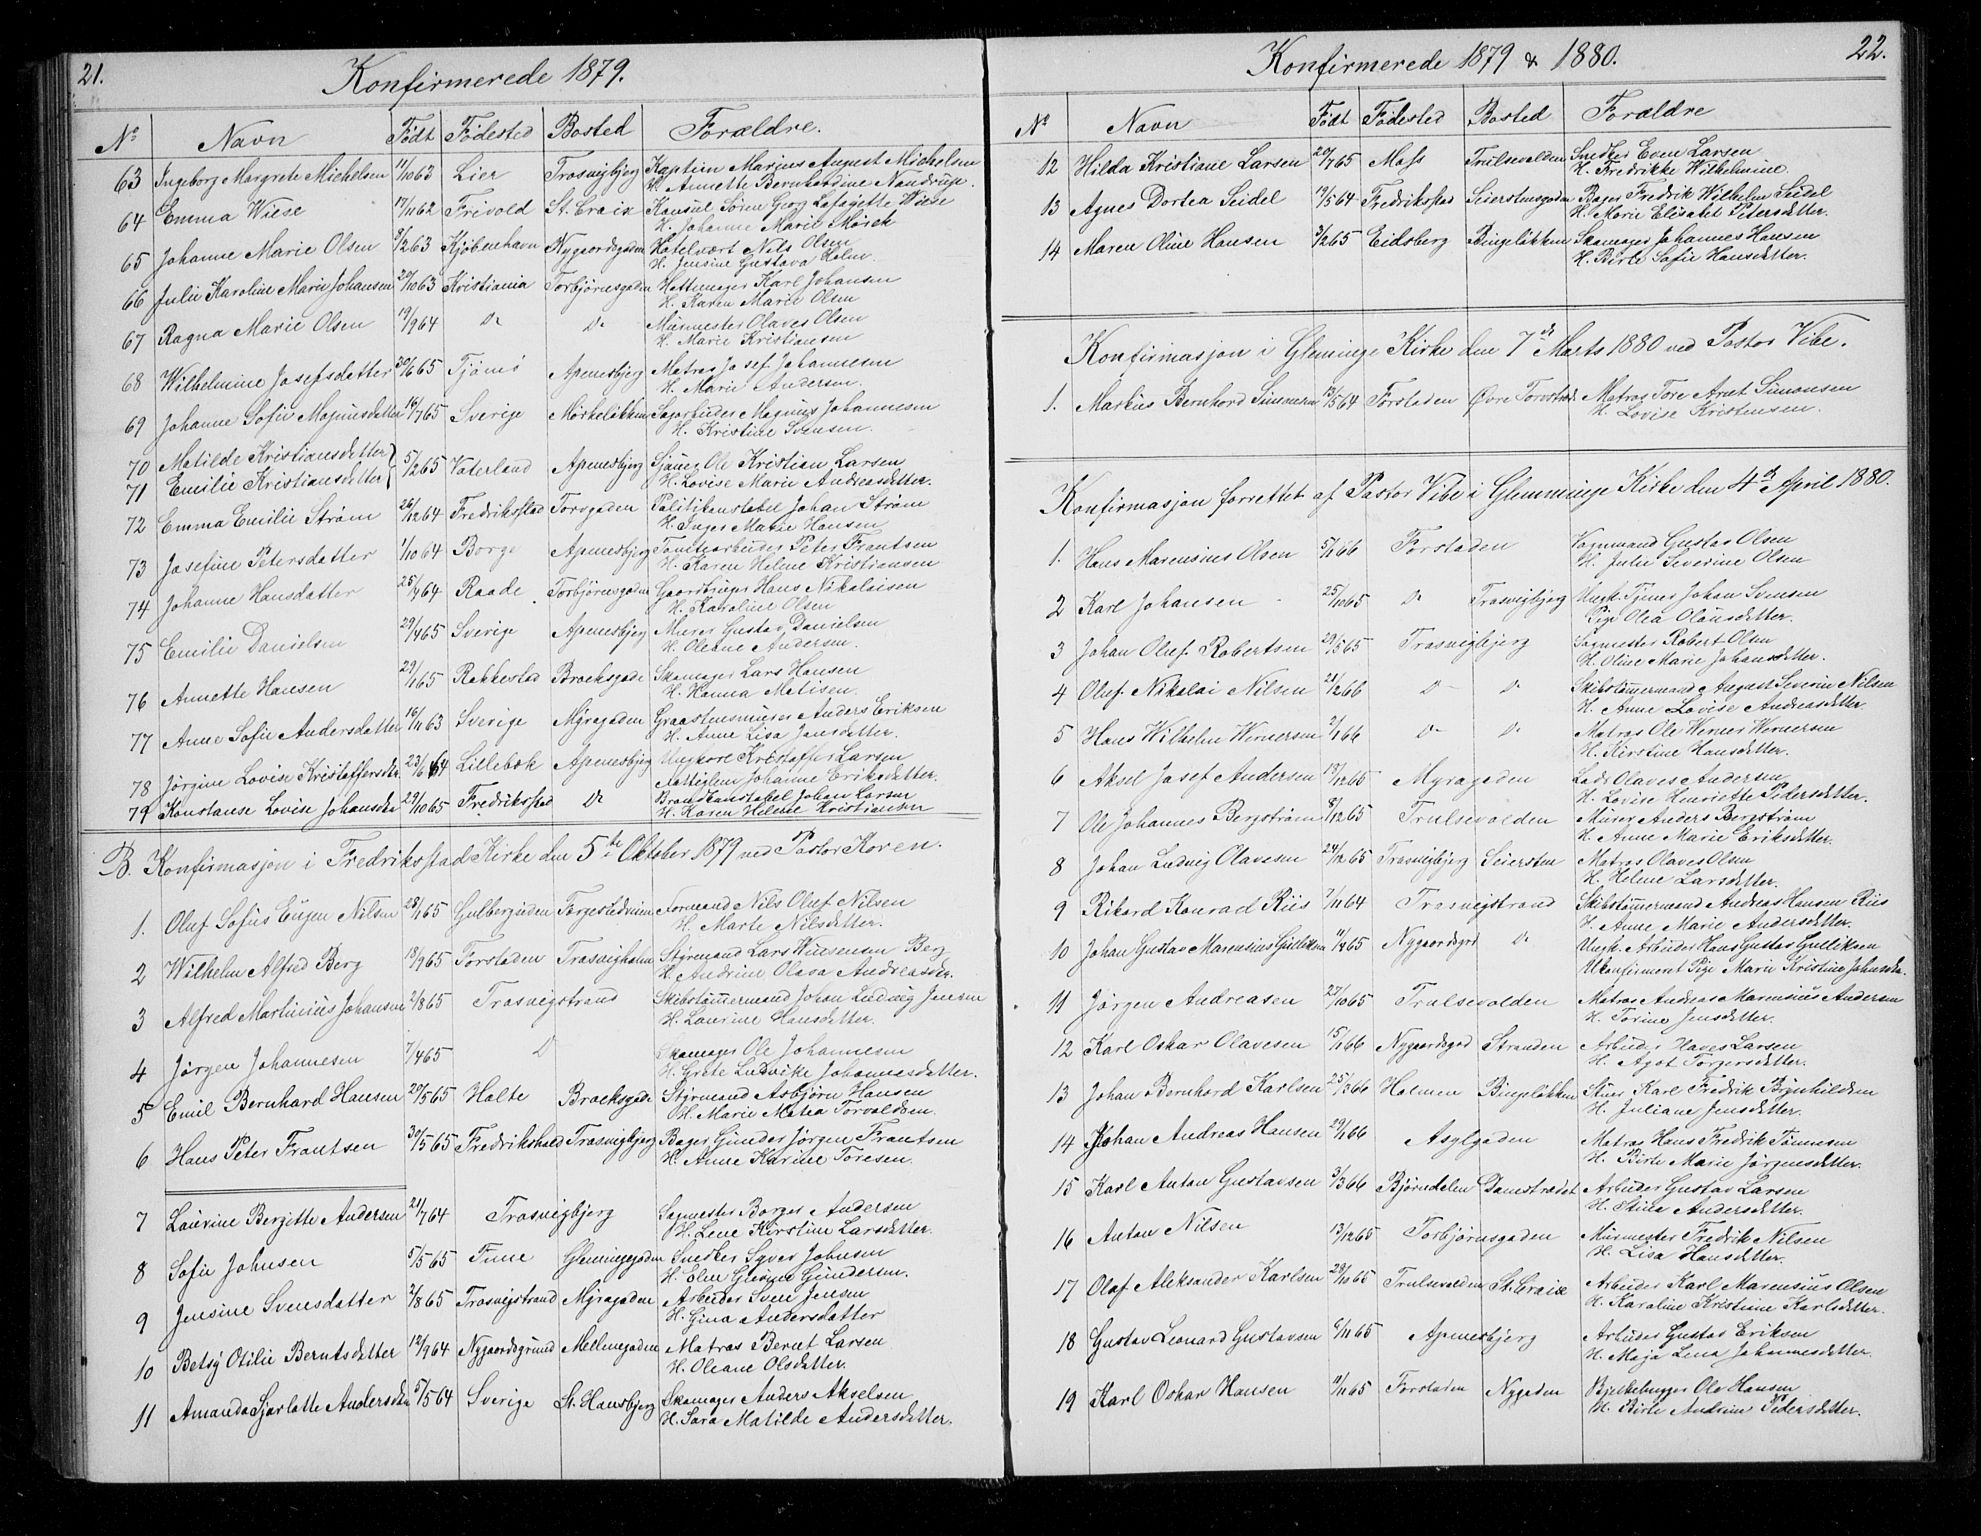 21.
Konfirmerede 1879.
No Navn Født Fødested Bosted Forældre.
63 Ingeborg Margrete Michelsen 11/10 63 Lier Trosvigbjerg Kaptein Marius August Michelsen
H. Annette Bernhardine Naudrup.
64 Emma Wiese 17/11 62 Frivold St. Croix Konsul Søren Georg Lafayette Wiese
H. Johanne Marie Mørch
65 Johanne Marie Olsen 9/2 63 Kjøbenhavn Nygaardsgaden Hotelvært Nils Olsen
H. Jensine Gustava Holm.
66 Julie Karoline Marie Johansen 20/10 63 Kristiania Torbjørnsgaden Hattemager Karl Johansen
H. Karen Marie Olsen
67 Ragna Marie Olsen 19/9 64 Do Do Mürmester Olaves Olsen
H. Marie Kristiansen
68 Wilhelmine Josefsdatter 30/6 65 Tjømø Apenesbjerg Matros Josef Johannesen
H. Marie Andersen.
69 Johanne Sofie Magnusdatter 16/7 65 Sverige Mørkeløkken Sagarbeider Magnus Johannesen
H. Kristine Svensen.
70 Matilde Kristiansdatter } 5/12 65 Vaterland Apenesbjerg Sjauer Ole Kristian Larsen
71 Emilie Kristiansdatter H. Lovise Marie Andreasdatter.
72 Emma Emilie Strøm 26/12 64 Fredrikstad Torvgaden Politikonstabel Johan Strøm
H. Inger Marie Hansen
73 Josefine Petersdatter 1/10 64 Borge Apenesbjerg Tomtearbeider Peter Frantsen
H. Karen Helene Kristiansen
74 Johanne Hansdatter 25/4 64 Raade Torbjørnsgaden Gaardbruger Hans Nikolaisen
H. Karoline Olsen
75 Emilie Danielsen 29/4 65 Sverige Apenesbjerg Murer Gustav Danielsen
H. Oleane Andersen.
76 Annette Hansen 29/1 65 Rakkestad Brochsgade Skomager Lars Hansen
H. Hanna Matisen.
77 Anne Sofie Andersdatter 16/11 63 Sverige Myragaden Graastensmurer Anders Eriksen
H. Anne Lisa Jansdatter.
78 Jørgine Lovise Kristoffersdtr. 23/6 64 Lillebæk Apenesbjerg Ungkarl Kristoffer Larsen
Johanne Eriksdatter.
79 Konstanse Lovise Johansdtr 29/10 65 Fredrikstad Do Brandkonstabel Johan Larsen
H. Karen Helene Kristiansen
B. Konfirmasjon i Fredrikstad Kirke den 5te Oktober 1879 ved Pastor Koren.
1. Oluf Sofus Eugen Nilsen 28/1 65 Gulbergsiden Formand Nils Oluf Nilsen
H. Marte Nilsdatter.
2 Wilhelm Alfred Berg 18/9 65 Forstaden Trosvigholm Styrmand Lars Berg
H. Andrine Olava Andreasdtr.
3 Alfred Martinius Johansen 2/8 65 Trosvigstrand Skibstømmermand Johan Ludvig Jensen
H. Laurine Hansdatter.
4 Jørgen Johannesen 7/4 65 Do Skomager Ole Johannesen
H. Grete Ludvike Johannesdatter.
5 Emil Bernhard Hansen 20/5 65 Holte Brochsgade Styrmand Asbjørn Hansen
H. Marie Matea Torvaldsen.
6 Hans Peter Frantsen 30/5 65 Fredrikshald Trosvigbjerg Bager Gunder Jørgen Frantsen
H. Anne Karine Toresen.
7 Laurine Bergitte Andersen 21/7 64 Trosvigbjerg Sagmester Borger Andersen
H. Lene Kirstine Larsdatter.
8 Sofie Johnsen 5/5 65 Tune Glemmegaden Snedker Syver Johnsen
H. Elen Gundersen.
9 Jensine Svensdatter 2/8 65 Trosvigstrand Myragaden Arbeider Sven Jensen
H. Gina Andersdatter
10 Betsy Otilie Berntsdatter 12/9 64 Nygaardsgrund Mellemgaden Matros Bernt Larsen
H. Oleane Olsdatter.
11 Amanda Sjarlotte Andersdtr 5/5 64 Sverige St. Hansbjerg Skomager Anders Akselsen
H. Sara Matilde Andersdatter.
Konfirmerede 1879 & 1880. 22.
No Navn Født Fødested Bosted Forældre
12 Hilda Kristiane Larsen 20/7 65 Moss Trulsevolden Snedker Even Larsen
H. Fredrikke Wilhelmine
13 Agnes Dortea Seidel 19/5 64 Fredrikstad Seierstensgaden Bager Fredrik Wilhelm Seidel
H. Marie Elisabet Petersdatter.
14 Maren Oline Hansen 3/2 65 Eidsberg Bingeløkken Skomager Johannes Hansen
H. Birte Sofie Hansdatter.
Konfirmasjon i Glemminge Kirke den 7de Marts 1880 ved Pastor Vibe.
1. Markus Bernhard Simonsen 13/5 64 Forstaden Øvre Torvstræde. Matros Tore Arnt Simonsen
H. Lovise Kristensen.
Konfirmasjon forrettet af Pastor Vibe i Glemminge Kirke den 4de April 1880.
1. Hans Marensius Olsen 5/1 66 Forstaden Vognmand Gustav Olsen
H. Julie Severine Olsen
2 Karl Johansen 25/10 65 Do Trosvigbjerg Ungk. Tjener Johan Svensen
Pige Olea Olausdatter.
3 Johan Oluf Robertsen 29/5 65 Trosvigbjerg Sagmester Robert Olsen
H. Oline Marie Johansdatter.
4 Oluf Nikolai Nilsen 21/2 66 Do Do Skibstømmermand August Severin Nilsen
H. Anne Lovise Andreasdatter
5 Hans Wilhelm Wernersen 2/1 66 Do Do Matros Ole Werner Wernersen
H. Kirstine Hansdatter.
6 Aksel Josef Andersen 18/12 65 Myragaden Lods Olaves Andersen
H. Lovise Henriette Pedersdatter.
7 Ole Johannes Bergstrøm 8/12 65 Trulsevolden Murer Anders Bergstrøm
H. Anne Marie Eriksdatter.
8 Johan Ludvig Olavesen 24/12 65 Trosvigbjerg Seiersten Matros Olaves Olsen
H. Helene Larsdatter.
9 Rikard Konrad Riis 7/11 64 Trosvigstrand Skibstømmermand Andreas Hansen Riis
H. Anne Marie Andersdatter.
10 Johan Gustav Marensius Gulliksen 11/4 65 Nygaardsgrd Do Ungk. Arbeider Hans Gustav Gulliksen
Ukonfirmeret Pige Marie Kristine Johnsdtr.
11 Jørgen Andreasen 27/10 65 Trulsevolden Matros Andreas Marensius Andersen
H. Torine Jensdatter.
12 Karl Oskar Olavesen 15/1 66 Nygaardsgrd Stranden Arbeider Olaves Larsen
H. Agot Torgersdatter.
13 Johan Bernhard Karlsen 25/3 66 Holmen Bingeløkken Stuer Karl Fredrik Brynhildsen
H. Juliane Jensdatter.
14 Johan Andreas Hansen 29/1 66 Asylgaden Matros Hans Fredrik Tønnesen
H. Birte Marie Jørgensdatter.
15 Karl Anton Gustavsen 3/3 66 Bjørndalen Damstrædet Arbeider Gustav Larsen
H. Stina Andersdatter.
16 Anton Nilsen 13/12 65 Torbjørnsgaden Mürmester Fredrik Nilsen
H. Lisa Hansdatter.
17 Olaf Aleksander Karlsen 28/10 65 Trulsevolden St. Croix Arbeider Karl Marensius Olsen
H. Karoline Kristine Karlsdatter.
18 Gustav Leonard Gustavsen 6/11 65 Apenesbjerg Arbeider Gustav Eriksen
H. Maja Lena Johannesdatter.
19 Karl Oskar Hansen 11/11 65 Forstaden Nygaden Ole Hansen
H. Birte Andrine Pedersdatter.